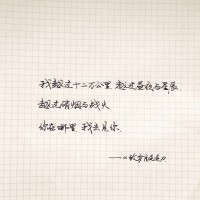 我越过十二万公里,越过昼夜与星辰
越过硝烟与战火
你在哪里,我去见你.
——《致岁月迢迢》